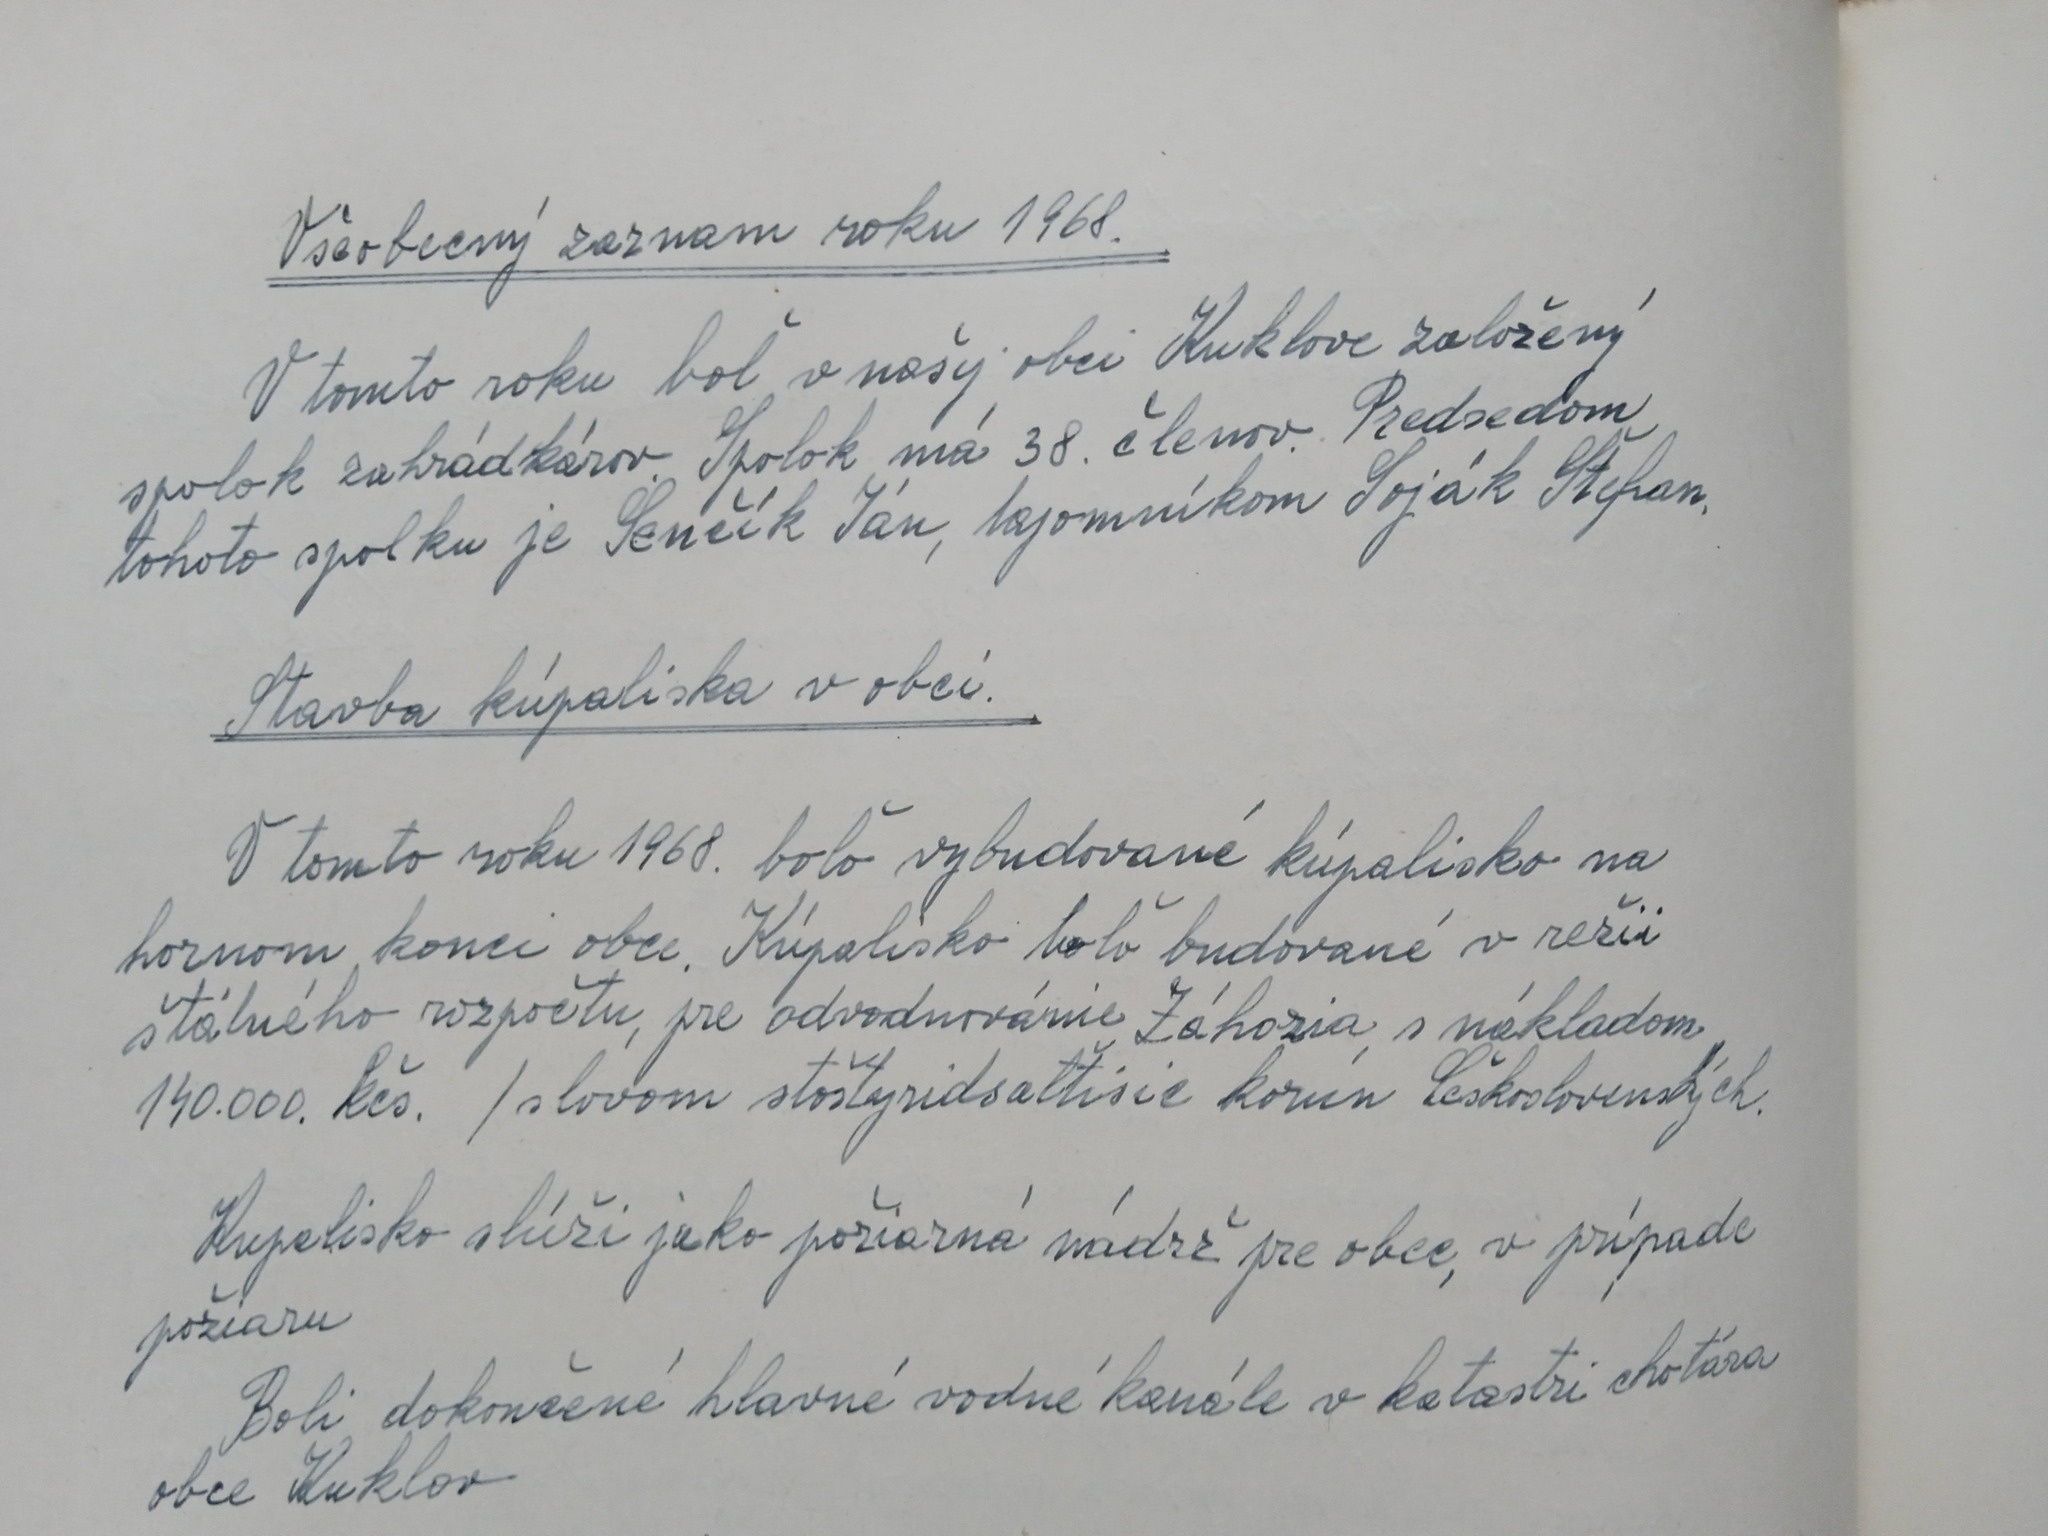 Všeobecný zaznam roku 1968.
V tomto roku bol v našej obci Kuklove založený
spolok zahrádkárov. Spolok má 38. členov. Predsedom
tohoto spolku je Senčík Ján, tajomníkom Soják Štefan.
Stavba kúpaliska v obci.
V tomto roku 1968. bolo vybudované kúpalisko na
hornom konci obce. Kúpalisko bolo budované v režii
štálného rozpočtu, pre odvodnovánie Záhoria, s nákladom
140.000. Kčs. /slovom stoštyridsaťtisíc korún Československých.
Kupalisko slúži jako požiarná nádrž pre obec, v prípade
požiaru
Boli dokončené hlavné vodné kanále v katastri chotára
obce Kuklov